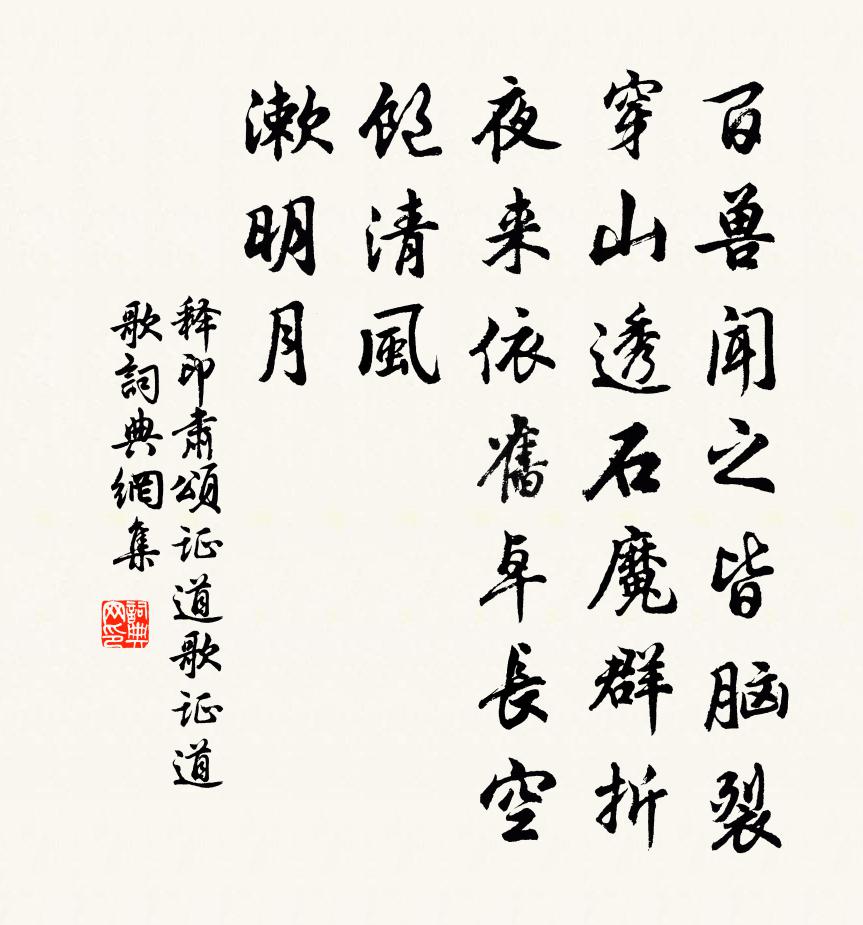 百兽闻之皆脑裂
穿山透石魔群折
夜来依舊卓長空
饱清風
漱明月
释印肃頌证道歌证道
歌詞典網集
詞典
网印